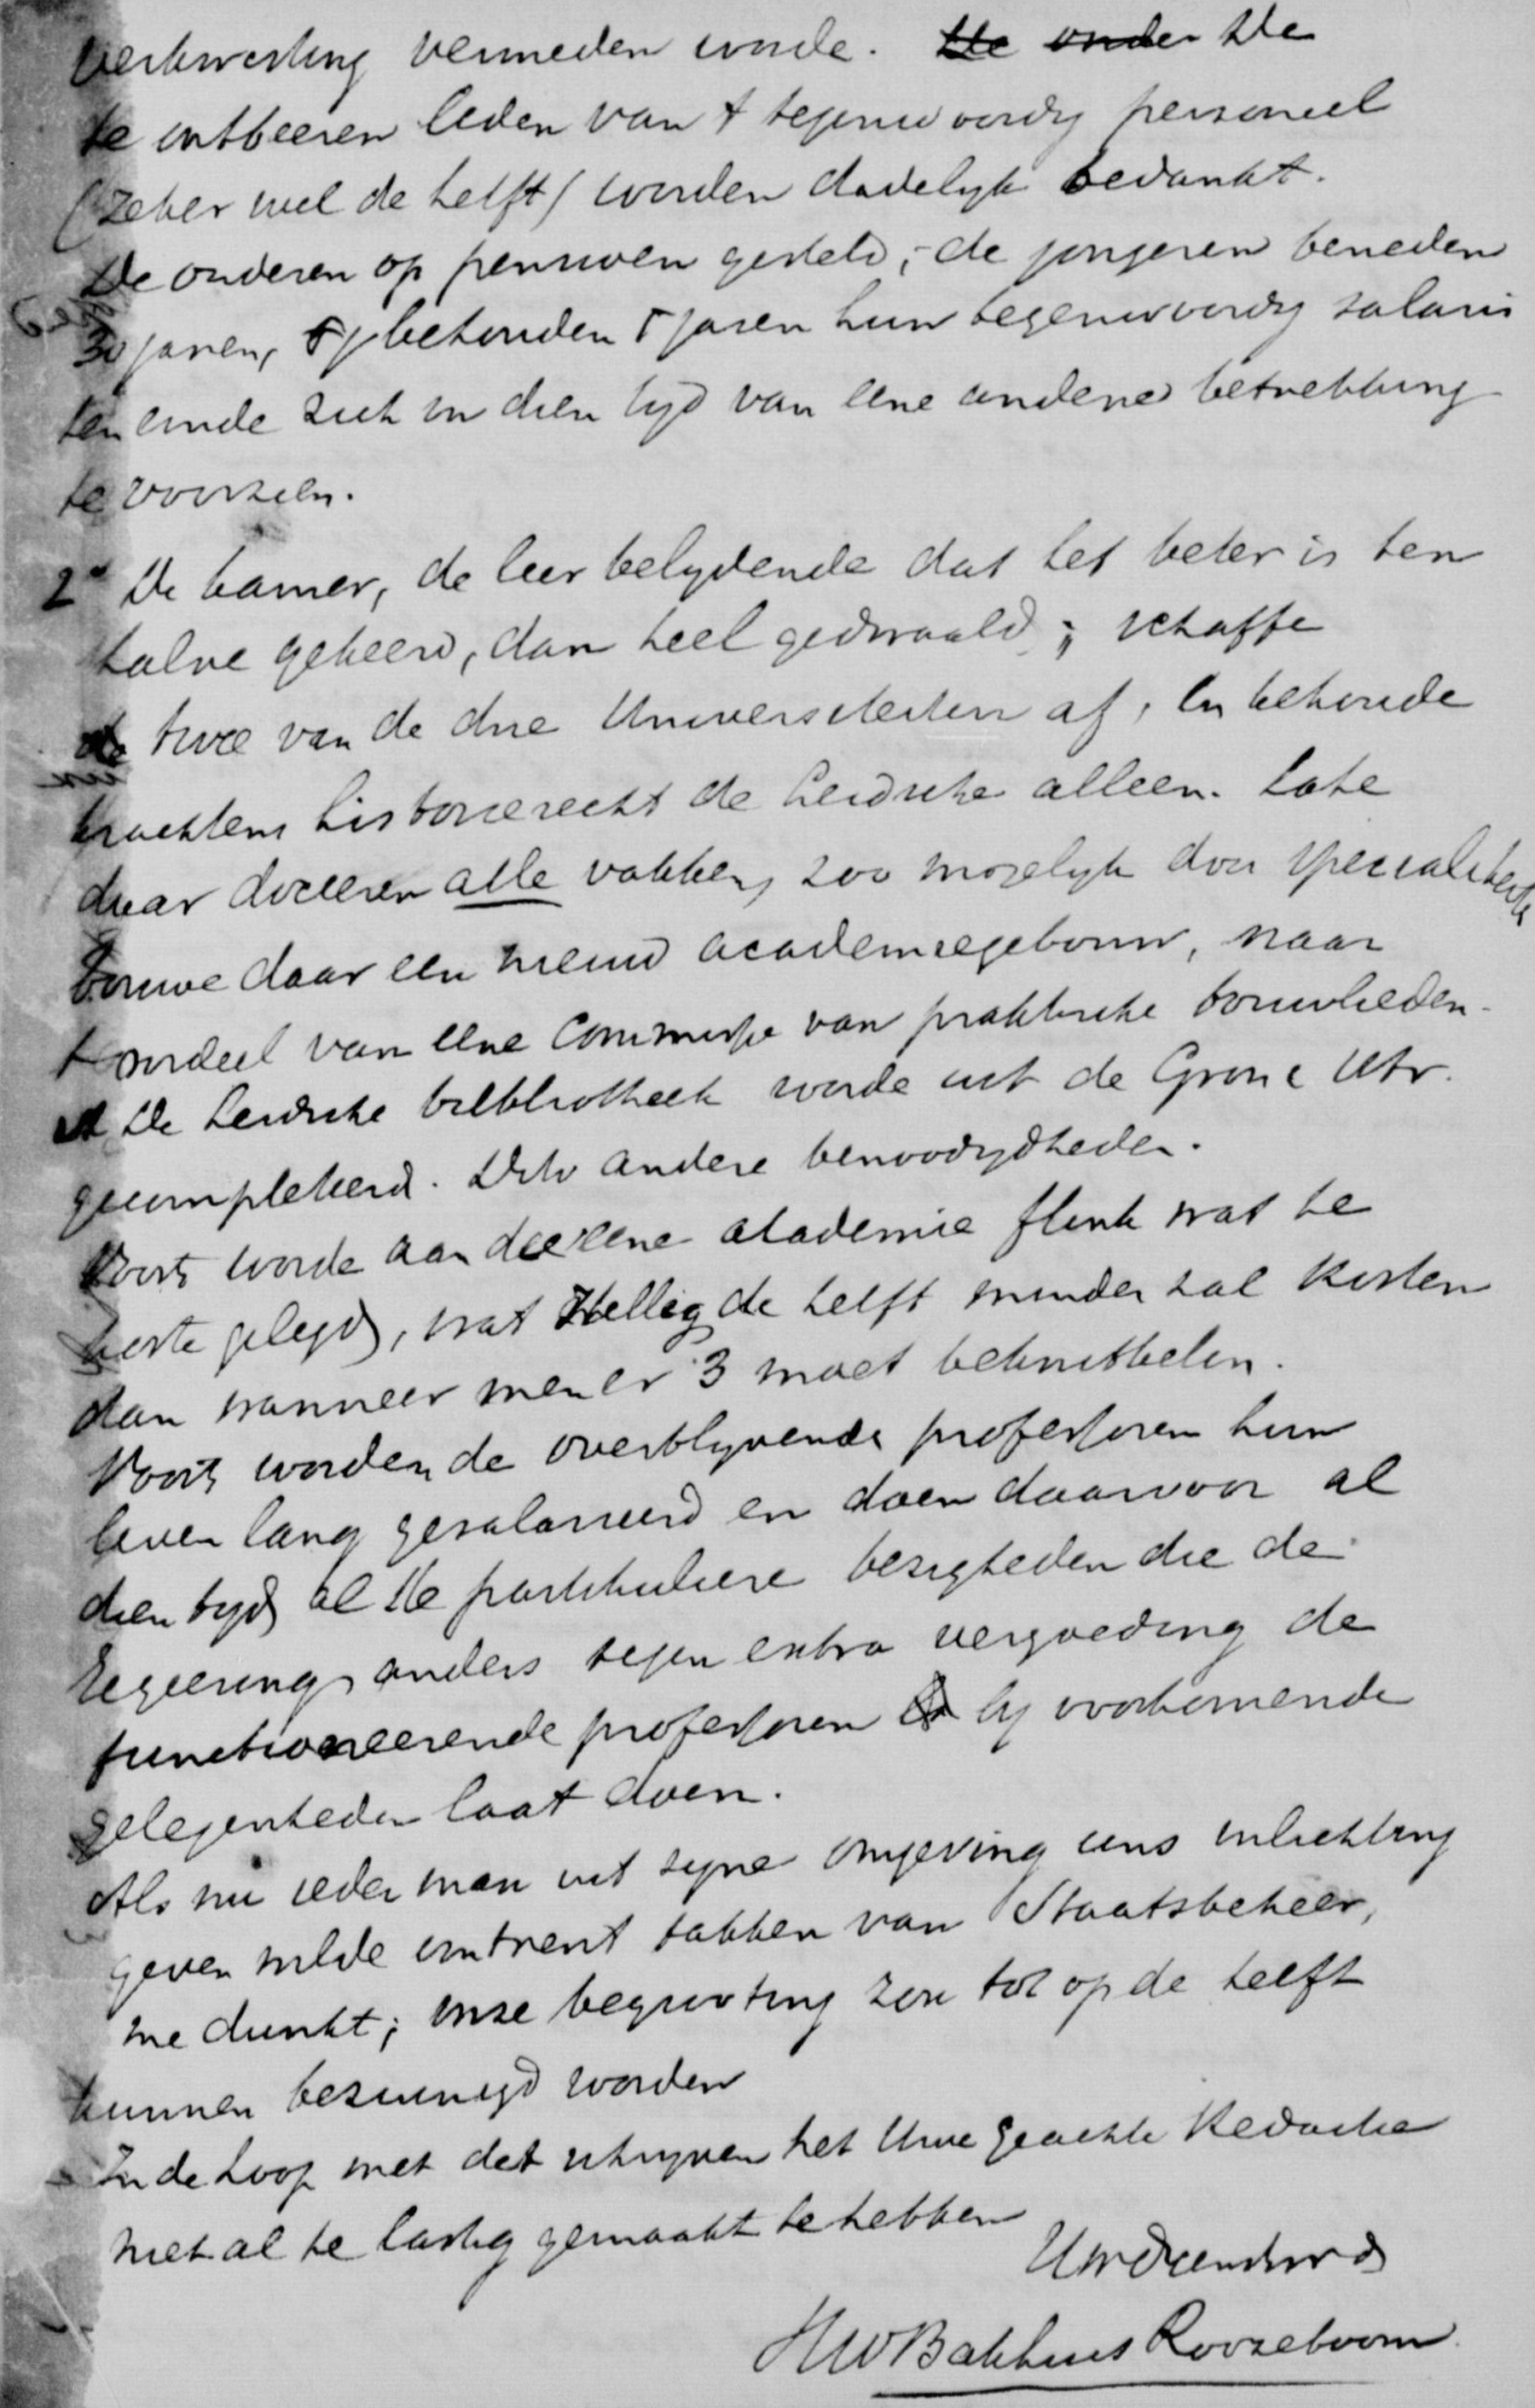 verkwisting vermeden worde. De onder De
te ontbeeren leden van 't tegenwoordig personeel
(zeker wel de helft) worden dadelyk bedankt.
De ouderen op pensioen gesteld, - de jongeren beneden
30 jaren, behouden 5 jaren hun tegenwoordig salaris
ten einde zich in dien tyd van eene andere betrekking
te voorzien.
2° De kamer, de leer belydende dat het beter is ten
halve gekeerd, dan heel gedwaald; schaffe
twee van de drie Universiteiten af, en behoude
krachtens historierecht de Leidsche alleen. Late
daar doceeren alle vakken, zoo mogelyk door specialiteiten
bouwe daar een nieuw academiegebouw, naar
't oordeel van eene Commissie van praktische bouwlieden.
De Leidsche bibliotheek worde uit de Gron. & Utr.
gecompleteerd. Dito andere benoodigdheden.
Voorts worde aan die eene akademie flink wat te
koste gelegd, wat stellig de helft minder zal kosten
dan wanneer men er 3 moet beknibbelen.
Voorts worden de overblyvende professoren hun
leven lang gesalarieerd en doen daarvoor al
dien tyd al de partikuliere bezigheden die de
Regeering anders tegen extra vergoeding de
functioneerende professoren by voorkomende
gelegenheden laat doen.
Als nu ieder man uit zyne omgeving eens inlichting
geven wilde omtrent takken van Staatsbeheer,
me dunkt; onze begrooting zou tot op de helft
kunnen bezuinigd worden
In de hoop met dit schryven het Uwe geachte Redactie
niet al te lastig gemaakt te hebben
Uw Dienstw d
HW Bakhuis Roozeboom